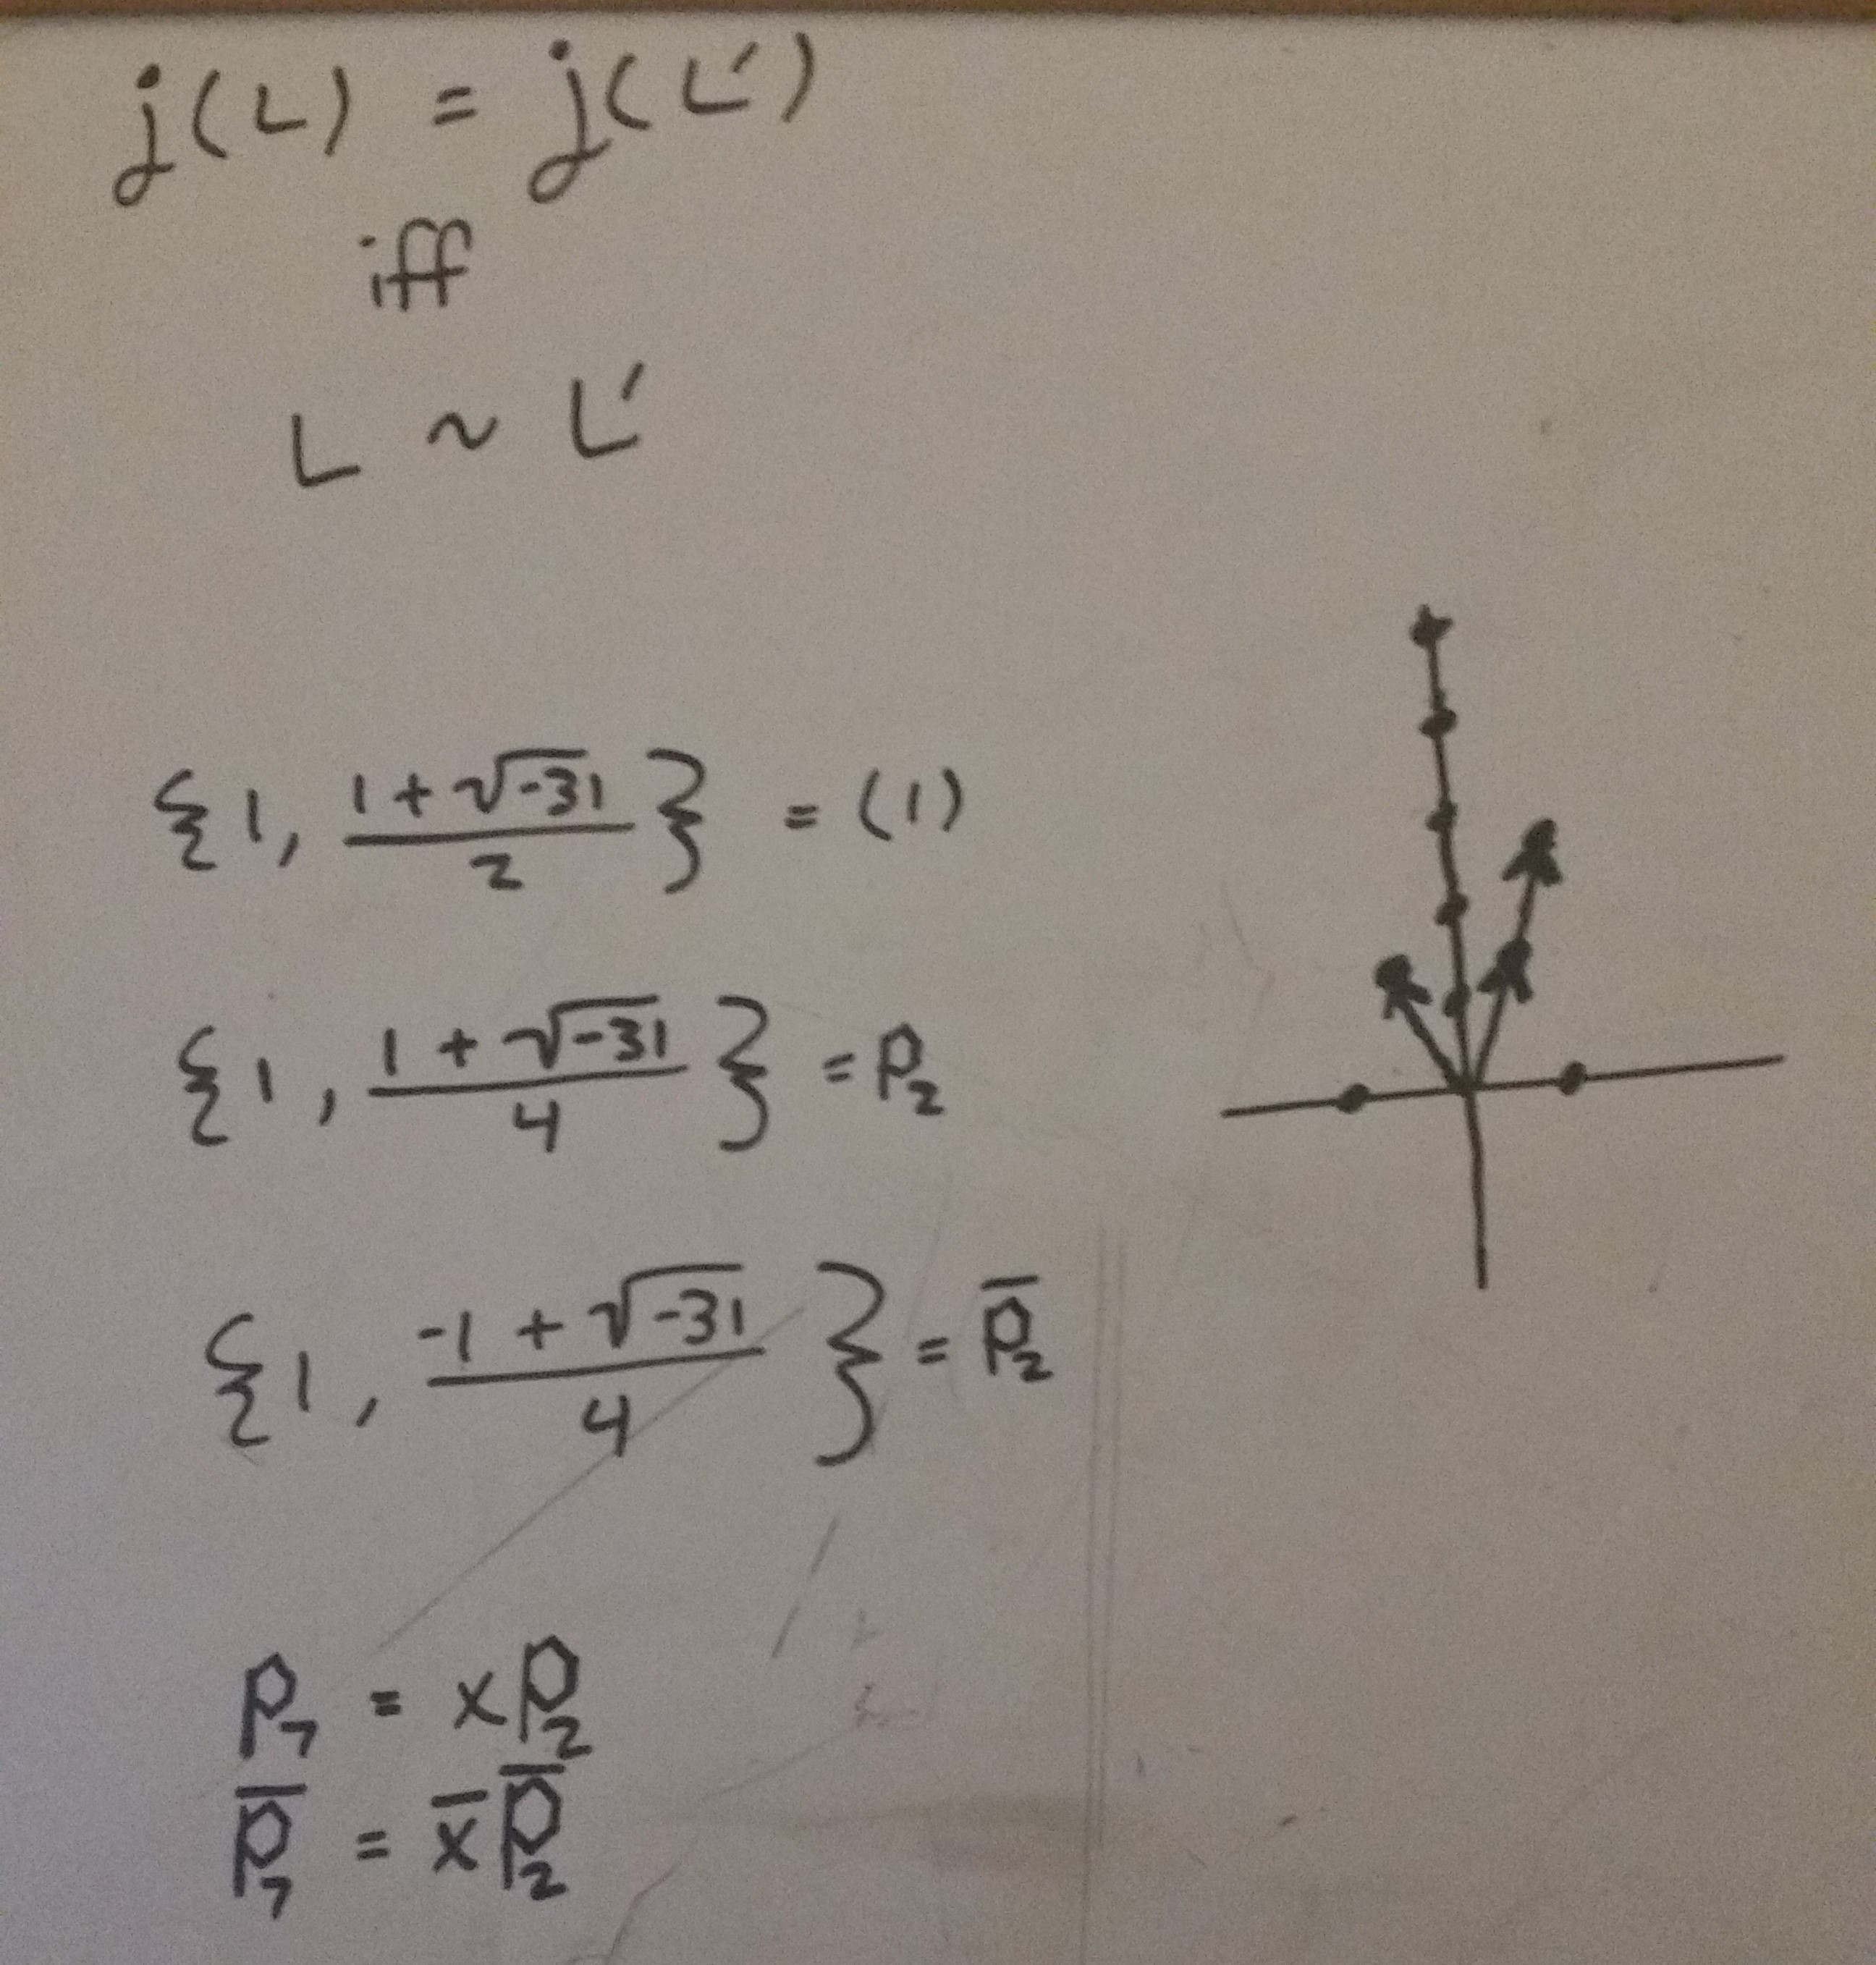 j(L) = j(L')
iff
L ~ L'
{1, (1+√-31)/2} = (1)
{1, (1+√-31)/4} = P₂
{1, (-1+√-31)/4} = P̅₂
P₇ = xP₂
P̅₇ = x̅P̅₂